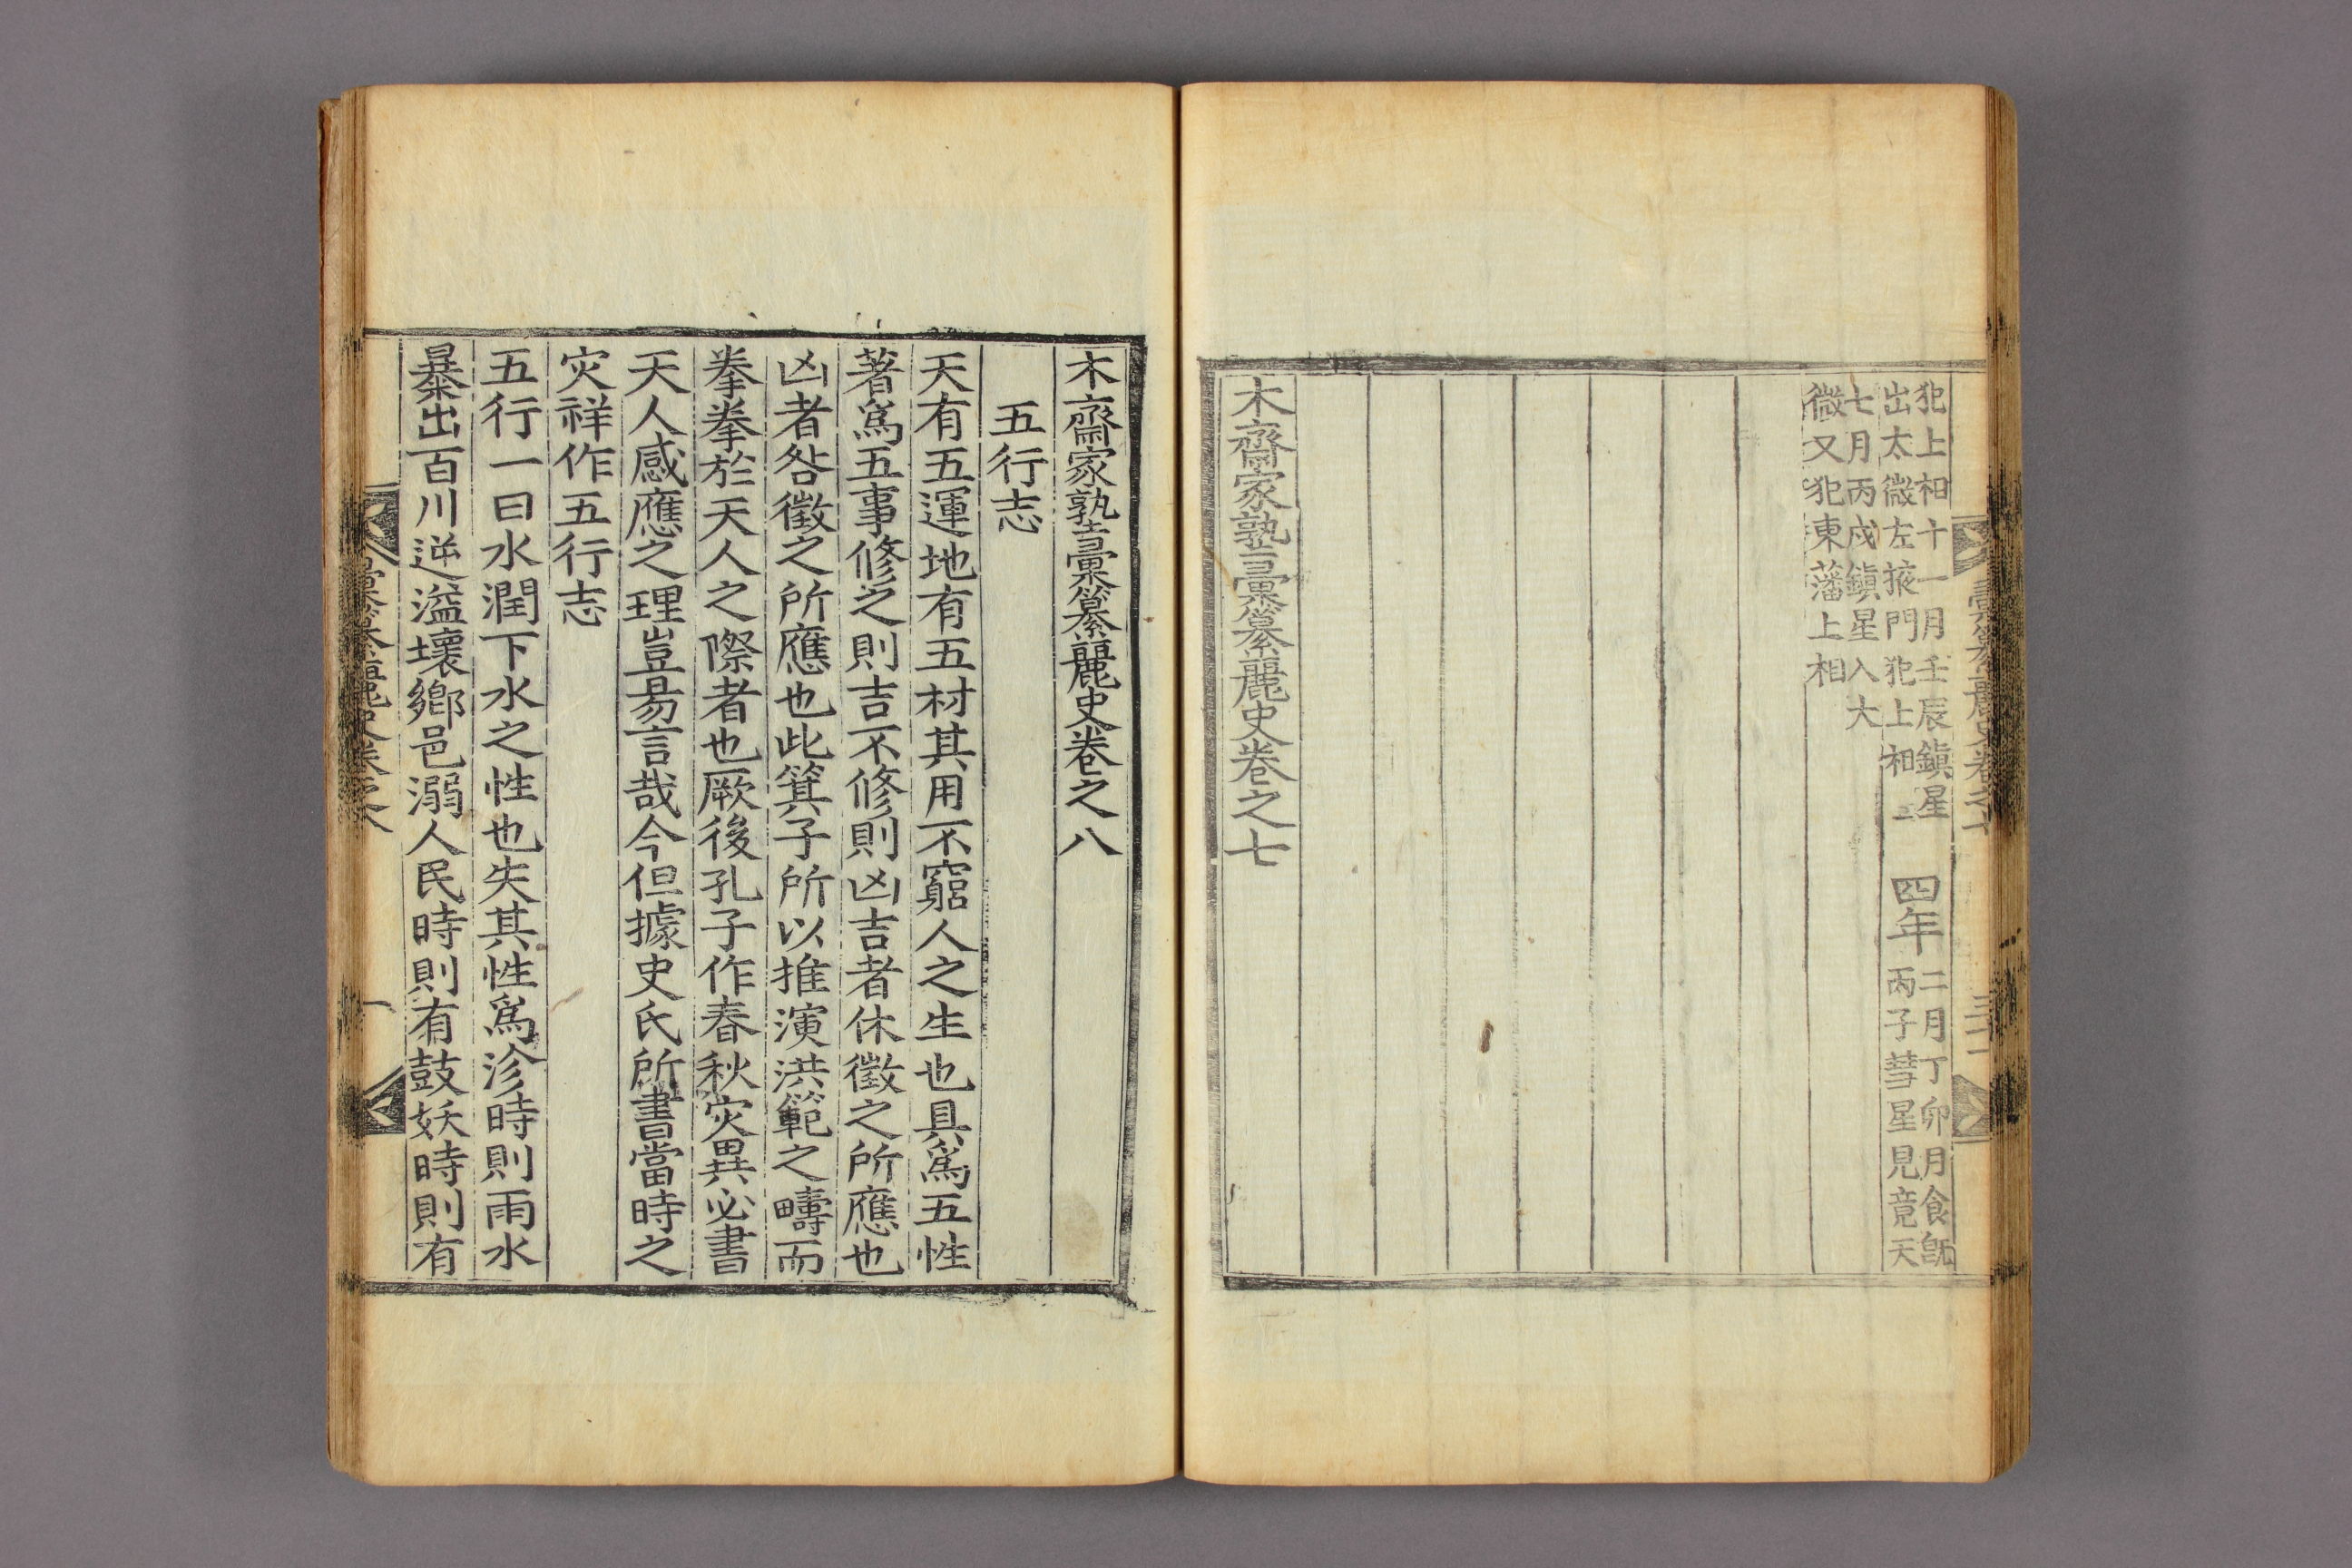 犯上相十一月壬辰鎭星
出太微左掖門犯上相
四年
二月丁卯月食旣
丙子彗星見竟天
七月丙戌鎭星入大
微又犯東藩上相
木齋家塾彙纂麗史卷之七
木齋家塾彙纂麗史卷之八
五行志
天有五運地有五材其用不窮人之生也具爲五性
著爲五事修之則吉不修則凶吉者休徵之所應也
凶者咎徵之所應也此箕子所以推演洪範之疇而
拳拳於天人之際者也厥後孔子作春秋灾異必書
天人感應之理豈易言哉今但據史氏所書當時之
灾祥作五行志
五行一曰水潤下水之性也失其性爲沴時則雨水
暴出百川逆溢壞鄕邑溺人民時則有鼓妖時則有
彙纂麗史卷之八
一